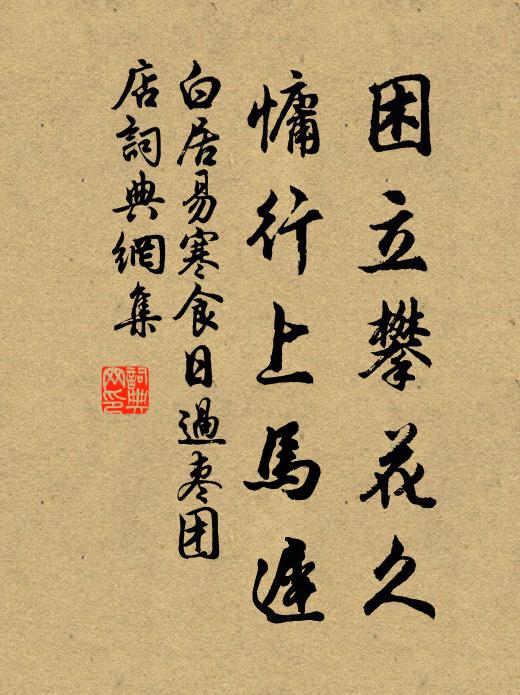 困立攀花久
慵行上馬遲
白居易寒食日過枣团
店詞典網集
詞典
网印